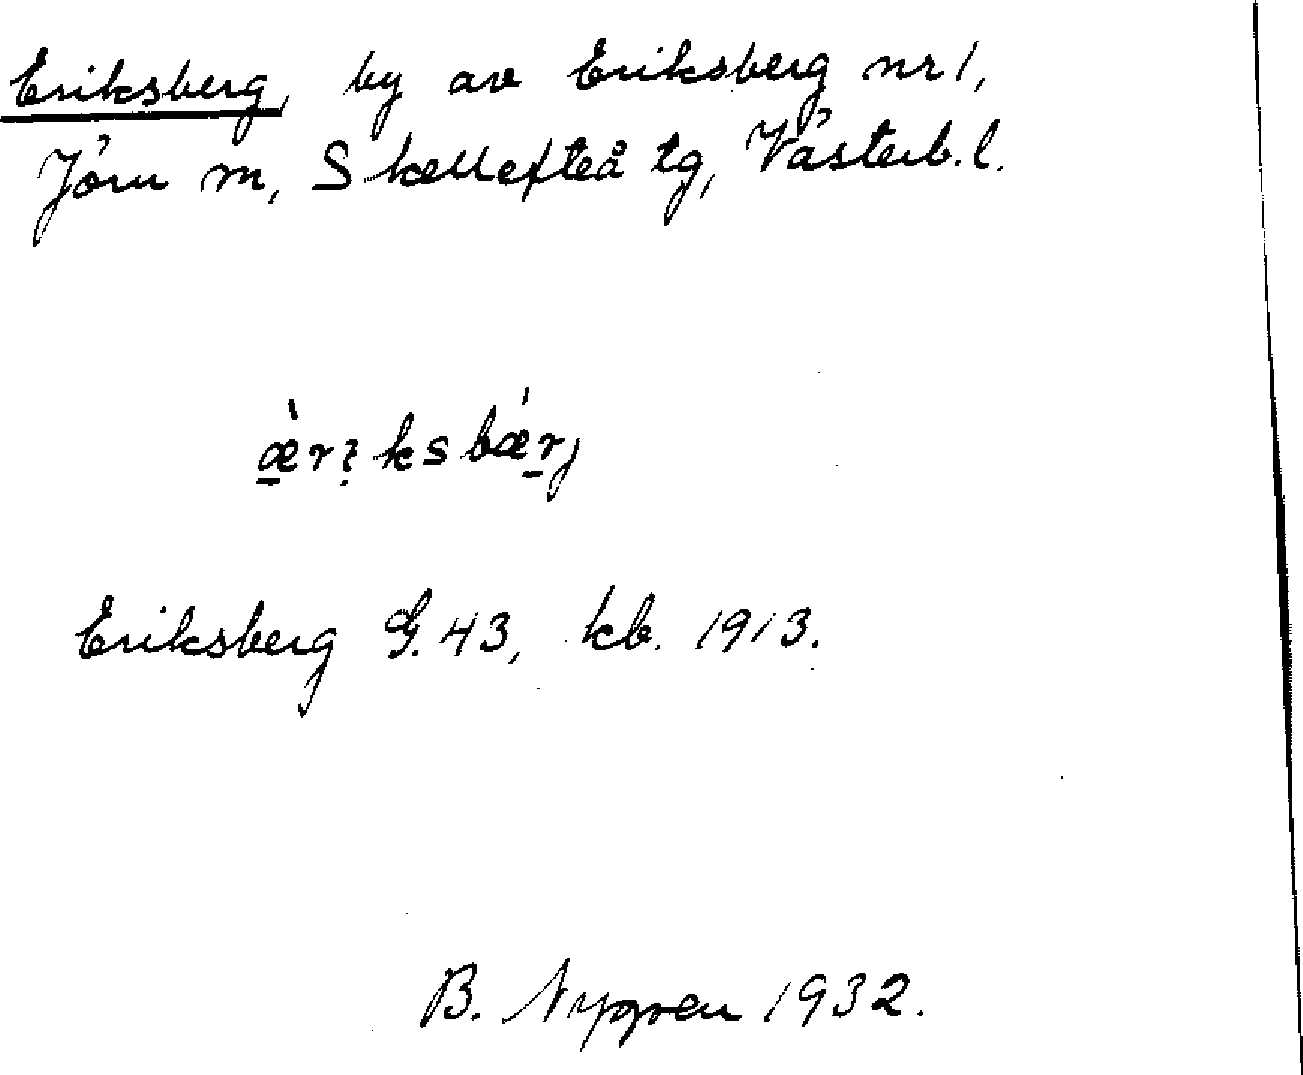 Eriksberg, by av Eriksberg nr 1,
Jörn sn, Skellefteå tg, Västerb. l.
æ̀rıksbǽrj
Eriksberg G. 43, kb. 1913.
B. Nygren 1932.